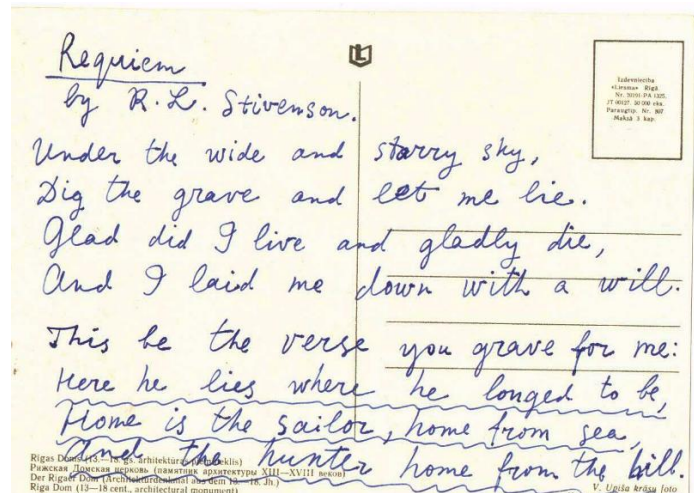 Requiem
by R. L. Stivenson.
Under the wide and starry sky,
Dig the grave and let me lie.
Glad did I live and gladly die,
And I laid me down with a will.
This be the verse you grave for me:
Here he lies where he longed to be,
Home is the sailor, home from sea,
And the hunter home from the hill.
Izdevniecība
«Liesma» Rīgā
Maksā 3 kap.
Rīgas Doms (13.—18. gs. arhitektūras piemineklis)
Рижская Домская церковь (памятник архитектуры XIII—XVIII веков)
Der Rigaer Dom (Architekturdenkmal aus dem 13.—18. Jh.)
Riga Dom (13—18 cent., architectural monument)
V. Upīša krāsu foto